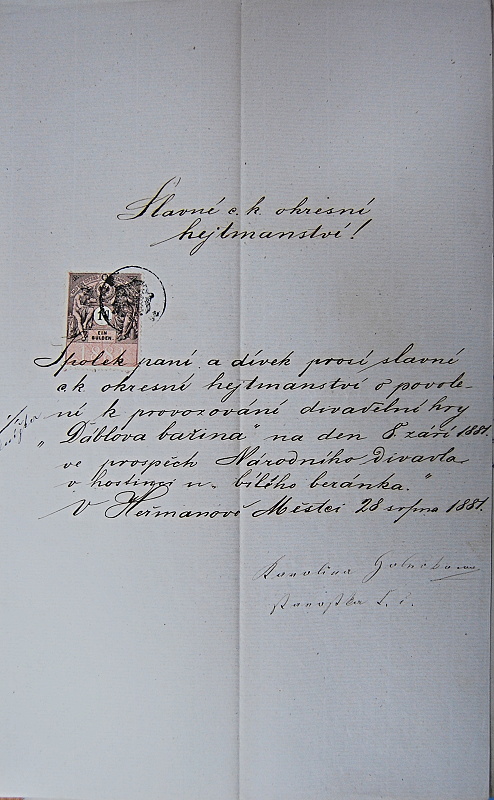 Slavné c. k. okresní
hejtmanství!
1
EIN
GULDEN.
Spolek paní a dívek prosí slavné
c k okresní hejtmanství o povole-
ní k provozování divadelní hry
„Ďáblova bažina" na den 8. září 1881.
ve prospěch Národního divadla
v hostinci u „bílého beránka."
V Heřmanově Městci 28 srpna 1881.
Karolina
starostka